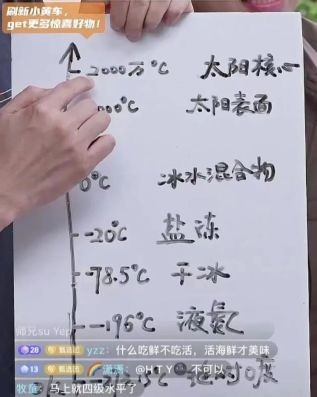 刷新小黄车，
get更多惊喜好物！
2000万°C 太阳核心
00°C 太阳表面
0°C 冰水混合物
-20°C 盐冻
-78.5°C 干冰
-196°C 液氮
师兄su Yep
28 甄选团 yzz：什么吃鲜不吃活，活海鲜才美味
13 甄选团 潇潇：@H T Y 不可以
牧鱼：马上就四级水平了